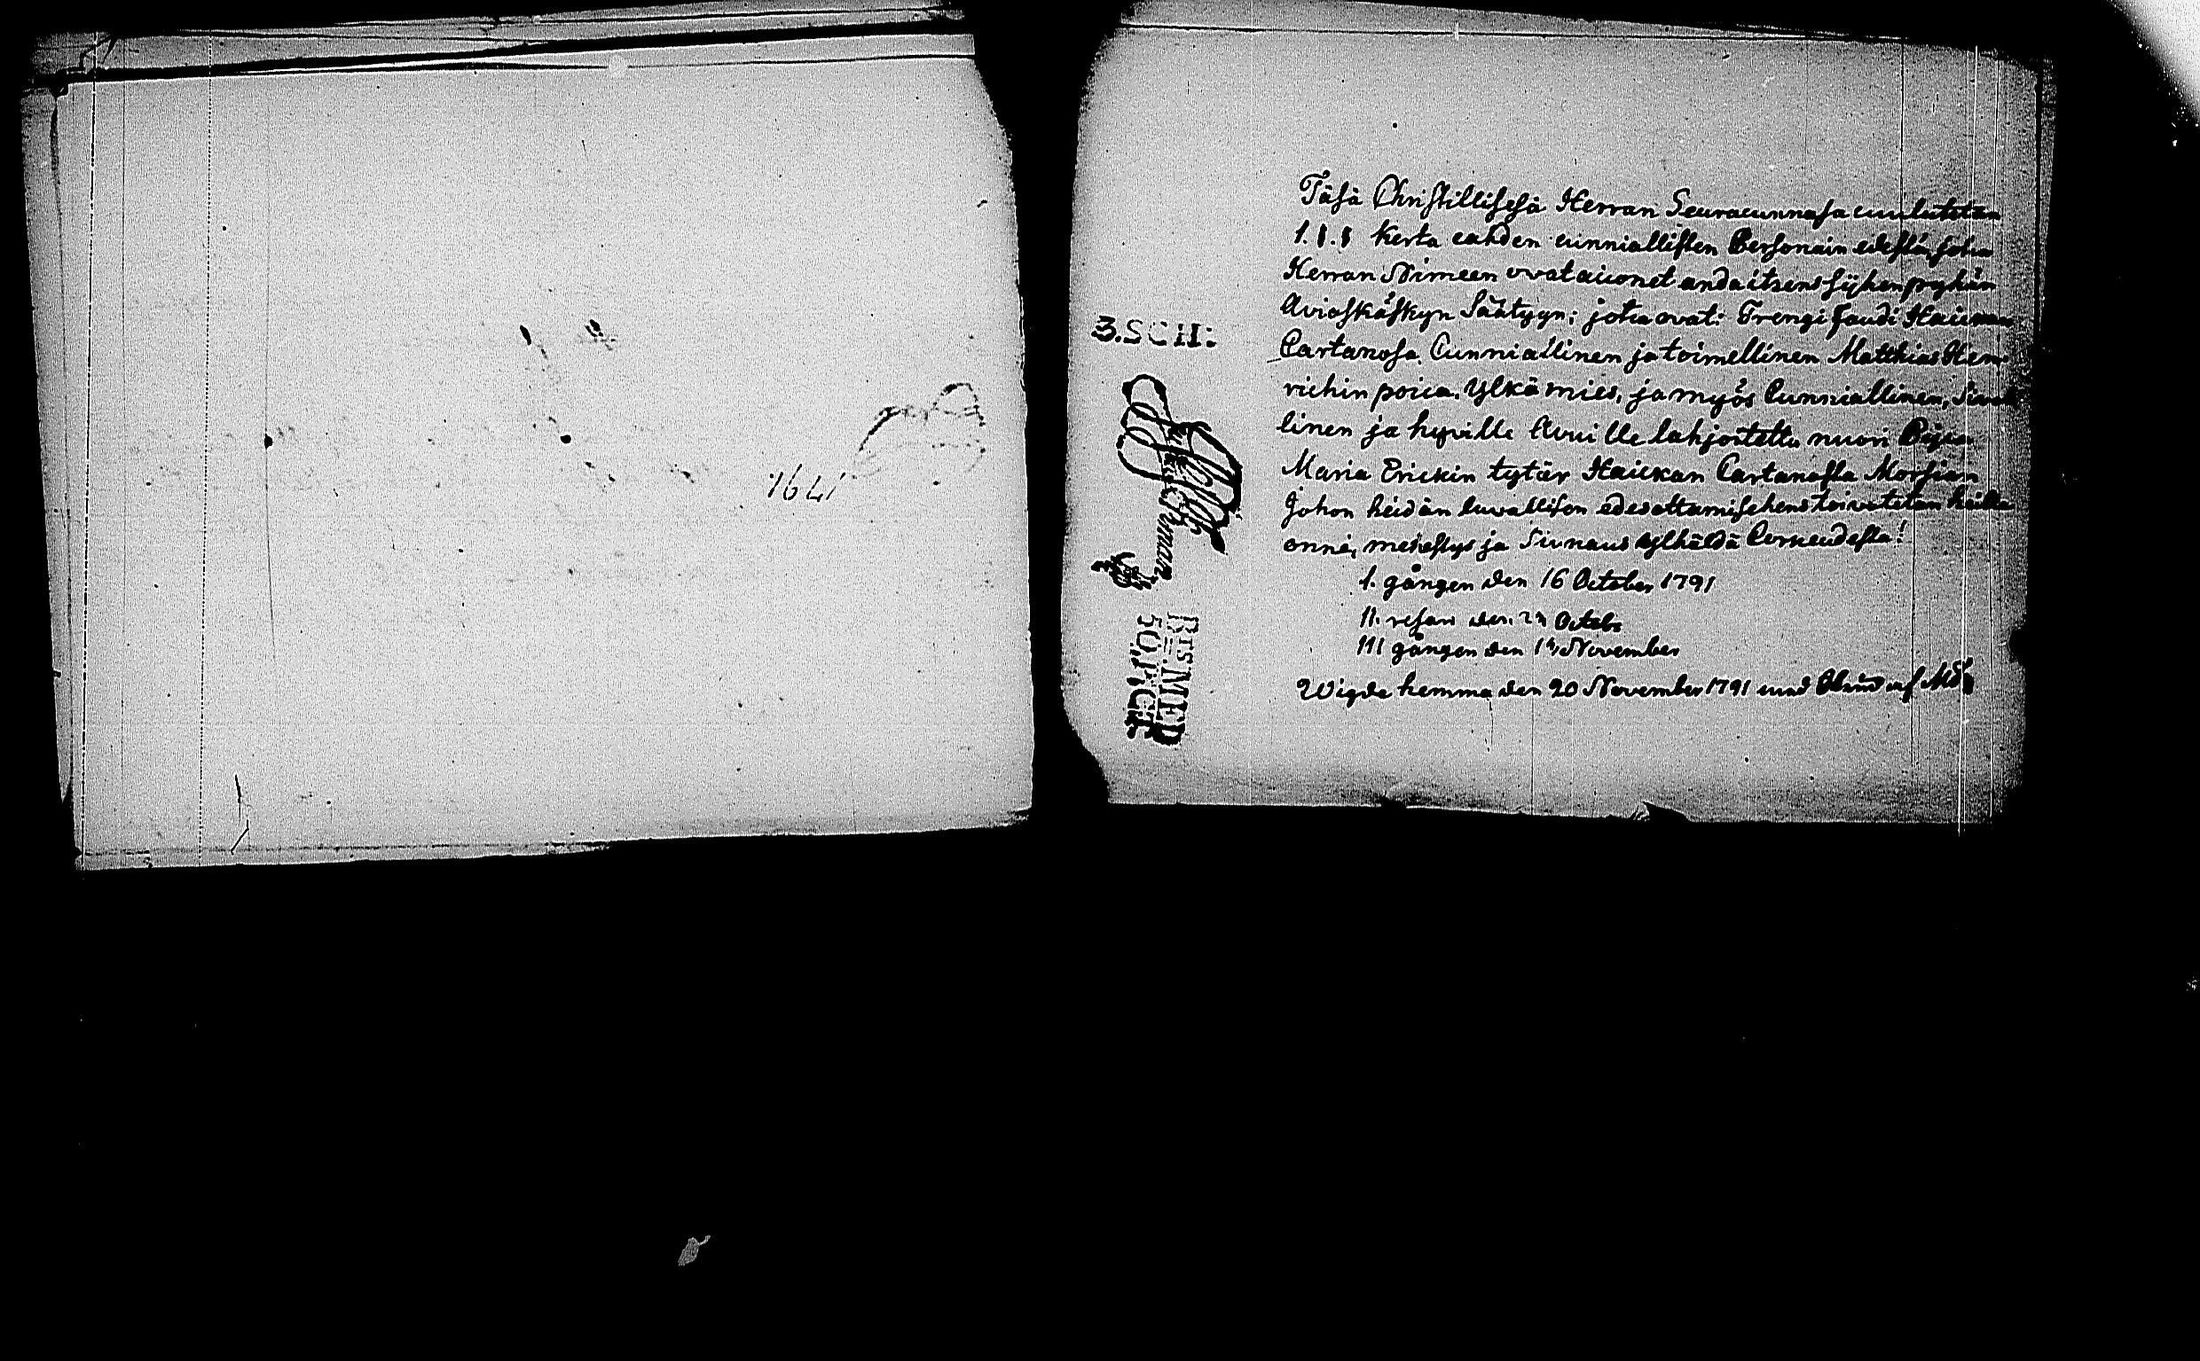 1641
Täsä Christillisesä Herran Seuracunnasa cuulutetan
1.1.1 kerta cahden cunniallisten Personain edestä, jotca
Herran Nimeen ovat aiconet anda itzens sijhen pyhän
Aviokäskyn Säätyyn; jotca ovat: Trengi Faudi Haickan
Cartanosa Cunniallinen ja toimellinen Matthias Hen-
richin poica. Ylkä mies, ja myös Cunniallinen,
linen ja hyville Avuille lahjoitettu nuori Pijca
Maria Erickin tytär Haickan Cartanosta Morsian
Johon heidän luvallisen edesottamisehens toivotetan heille
onni, menestys ja Siunaus ylhäldä Corkeudesta!
1. gången den 16 October 1791
11. resan den Octobr
111 gången den November
Wigde hemma den 20 November 1791 med af
3.SCH: